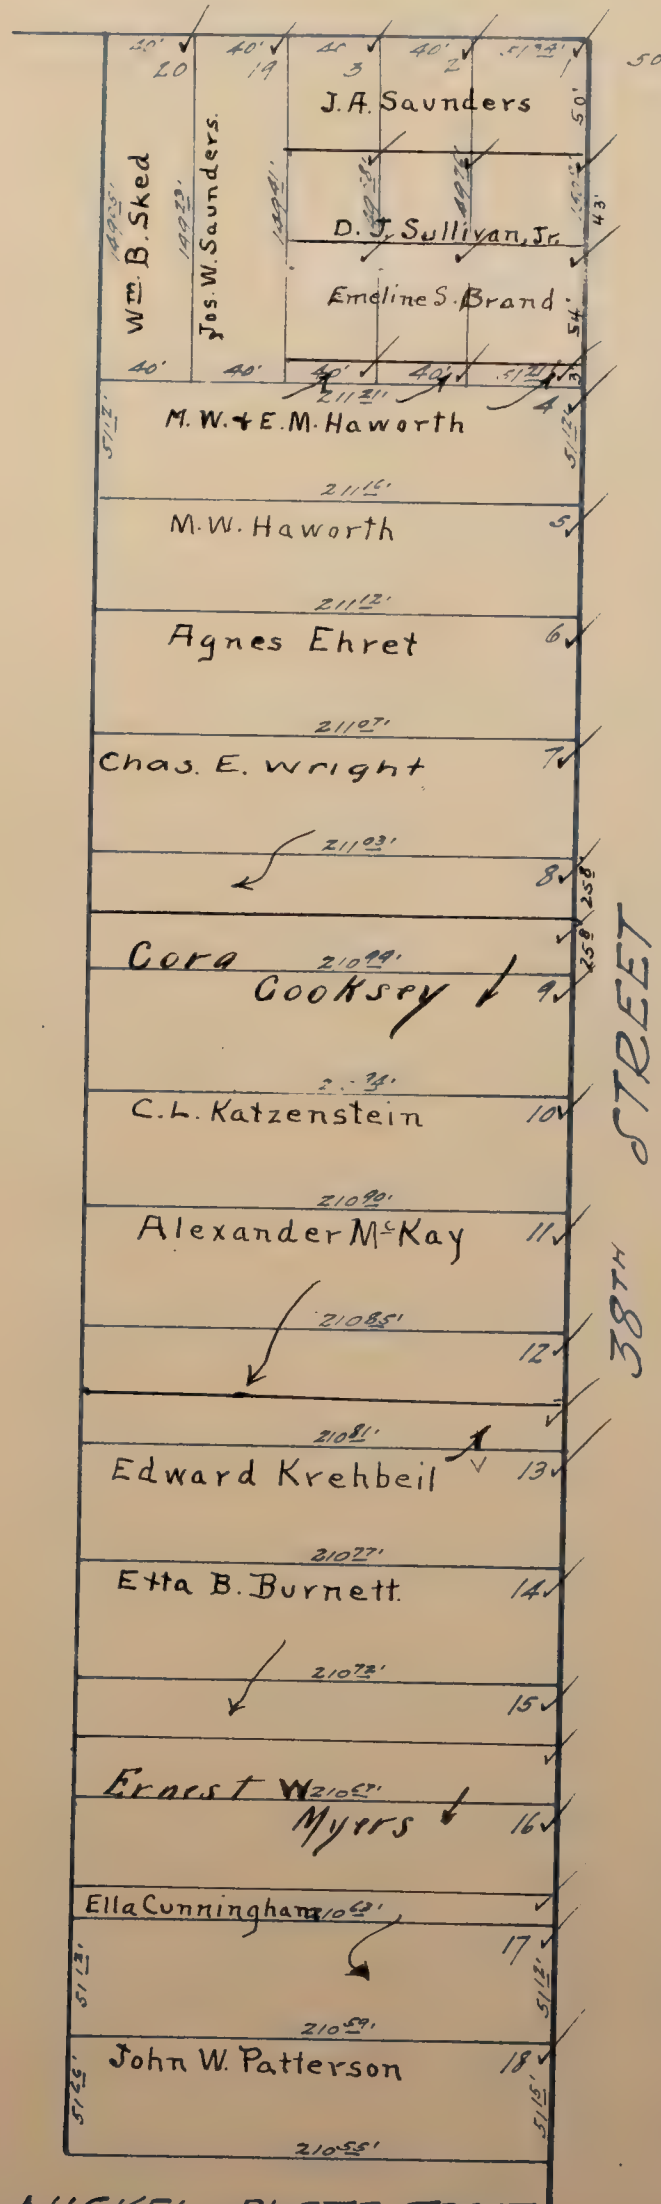 40' 40' 40 40' 51 24' 50
20 19 3 2 1
J.A. Saunders
50'
Wm. B. Sked
Jos. W. Saunders.
43'
D. J. Sullivan, Jr.
Emeline S. Brand
54'
40' 40' 40' 40' 51 21' 3'
211 21'
4
51 12'
M. W. + E. M. Haworth
51 12'
211 16'
M. W. Haworth
5
211 12'
Agnes Ehret
6
211 07'
Chas. E. Wright
7
211 03'
8
25 8'
25 8'
Cora
210 99'
Cooksey
9
C. L. Katzenstein
10
210 90'
Alexander McKay
11
210 85'
12
210 81'
Edward Krehbeil
13
210 77'
Etta B. Burnett.
14
210 72'
15
Ernest W
Myers
16
Ella Cunningham
17
51 12'
51 12'
210 59'
John W. Patterson
18
51 15'
210 55'
38TH STREET